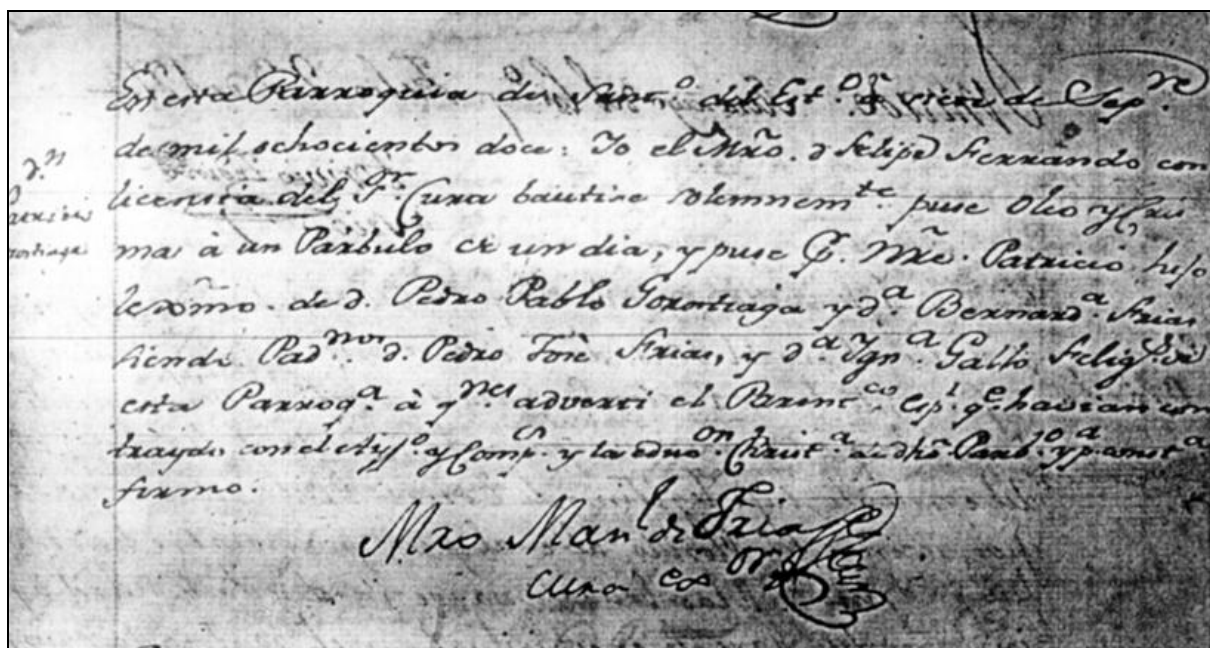 En esta Parroquia de Sant.o del Est.o à siete de Sep.re
de mil ochocientos doce: Yo el Mro. d Felipe Ferrando con
licencia del S.or Cura bautise solemnem.te puse Oleo y Cris
ma à un Parbulo de un dia, y puse p.r Nre. Patricio hijo
lexmo. de d. Pedro Pablo Gorostiaga y d.a Bernard.a Frias
siendo Pad.nos d. Pedro José Frias, y d.a Ygn.a Gallo Felig.s de
esta Parroq.a à q.nes adverti el Parent.co esp.l q.e havian con
traydo con el y Comp.s y la educ.on Christ.a de dho Parb.o y p.a const.a
firmo.
Mro Man.l de Frias
Cura Rr
d.n
Patricio
Gorostiaga